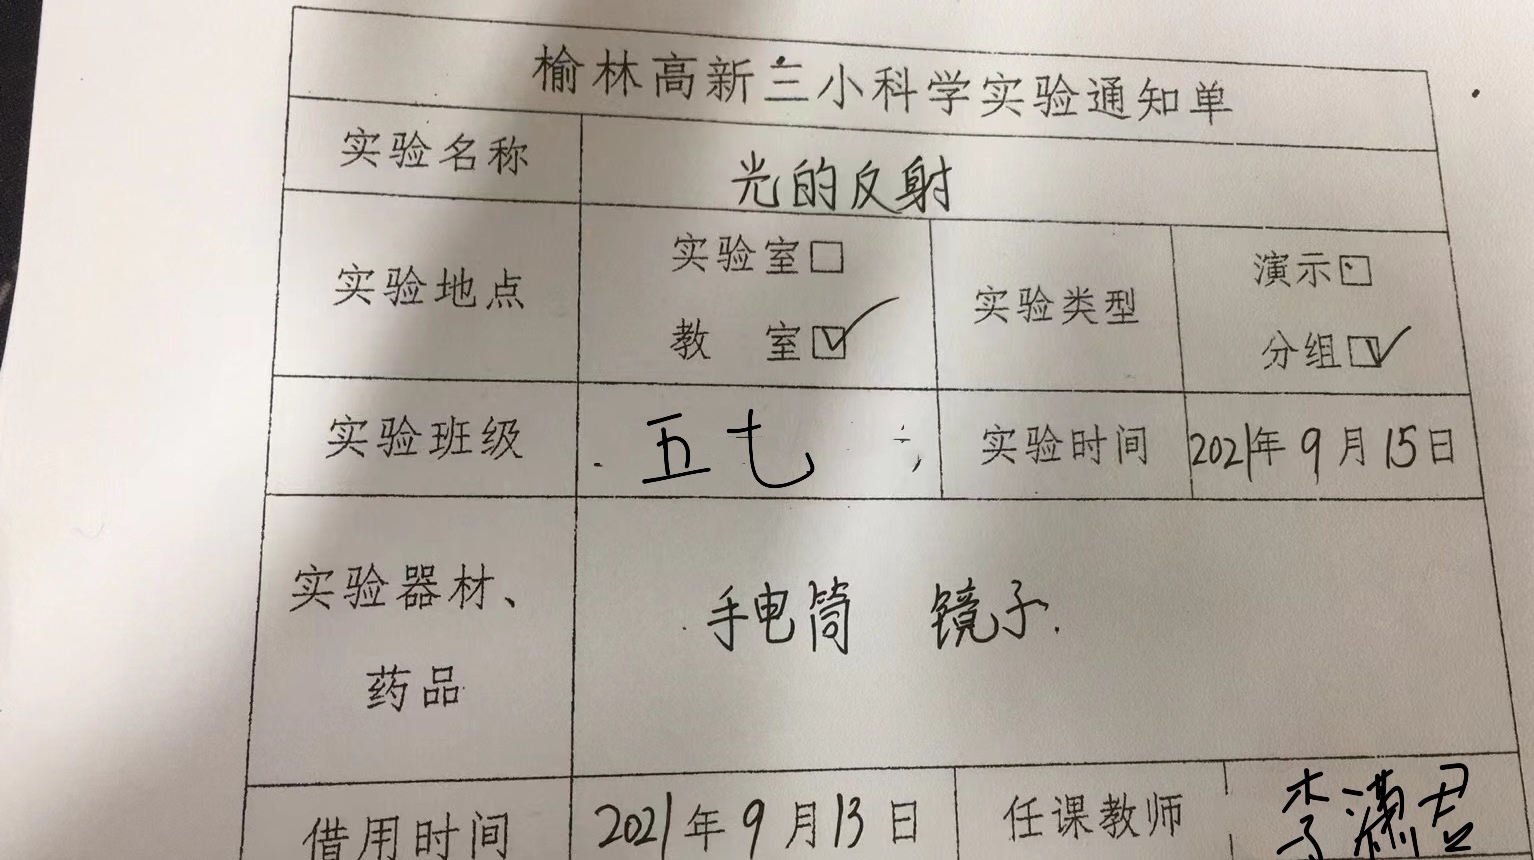 榆林高新三小科学实验通知单
实验名称 光的反射
实验地点 实验室□ 教 室☑ 实验类型 演示□ 分组☑
实验班级 五七 实验时间 2021年9月15日
实验器材、药品 手电筒 镜子.
借用时间 2021年9月13日 任课教师 李潇君